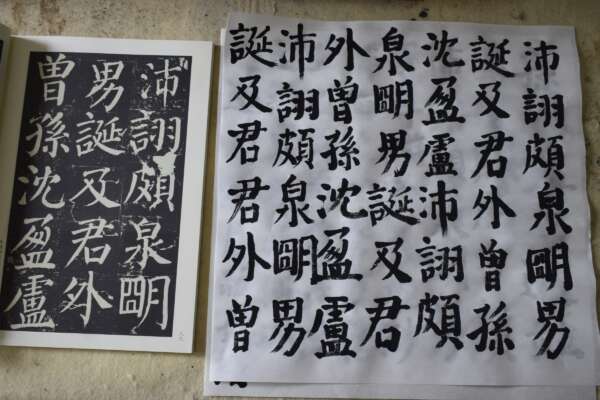 沛詡頗泉朙
男誕及君外
曽孫沈盈盧
沛詡頗泉朙男
誕及君外曽孫
沈盈盧沛詡頗
泉朙男誕及君
外曽孫沈盈盧
沛詡頗泉朙男
誕及君君外曽